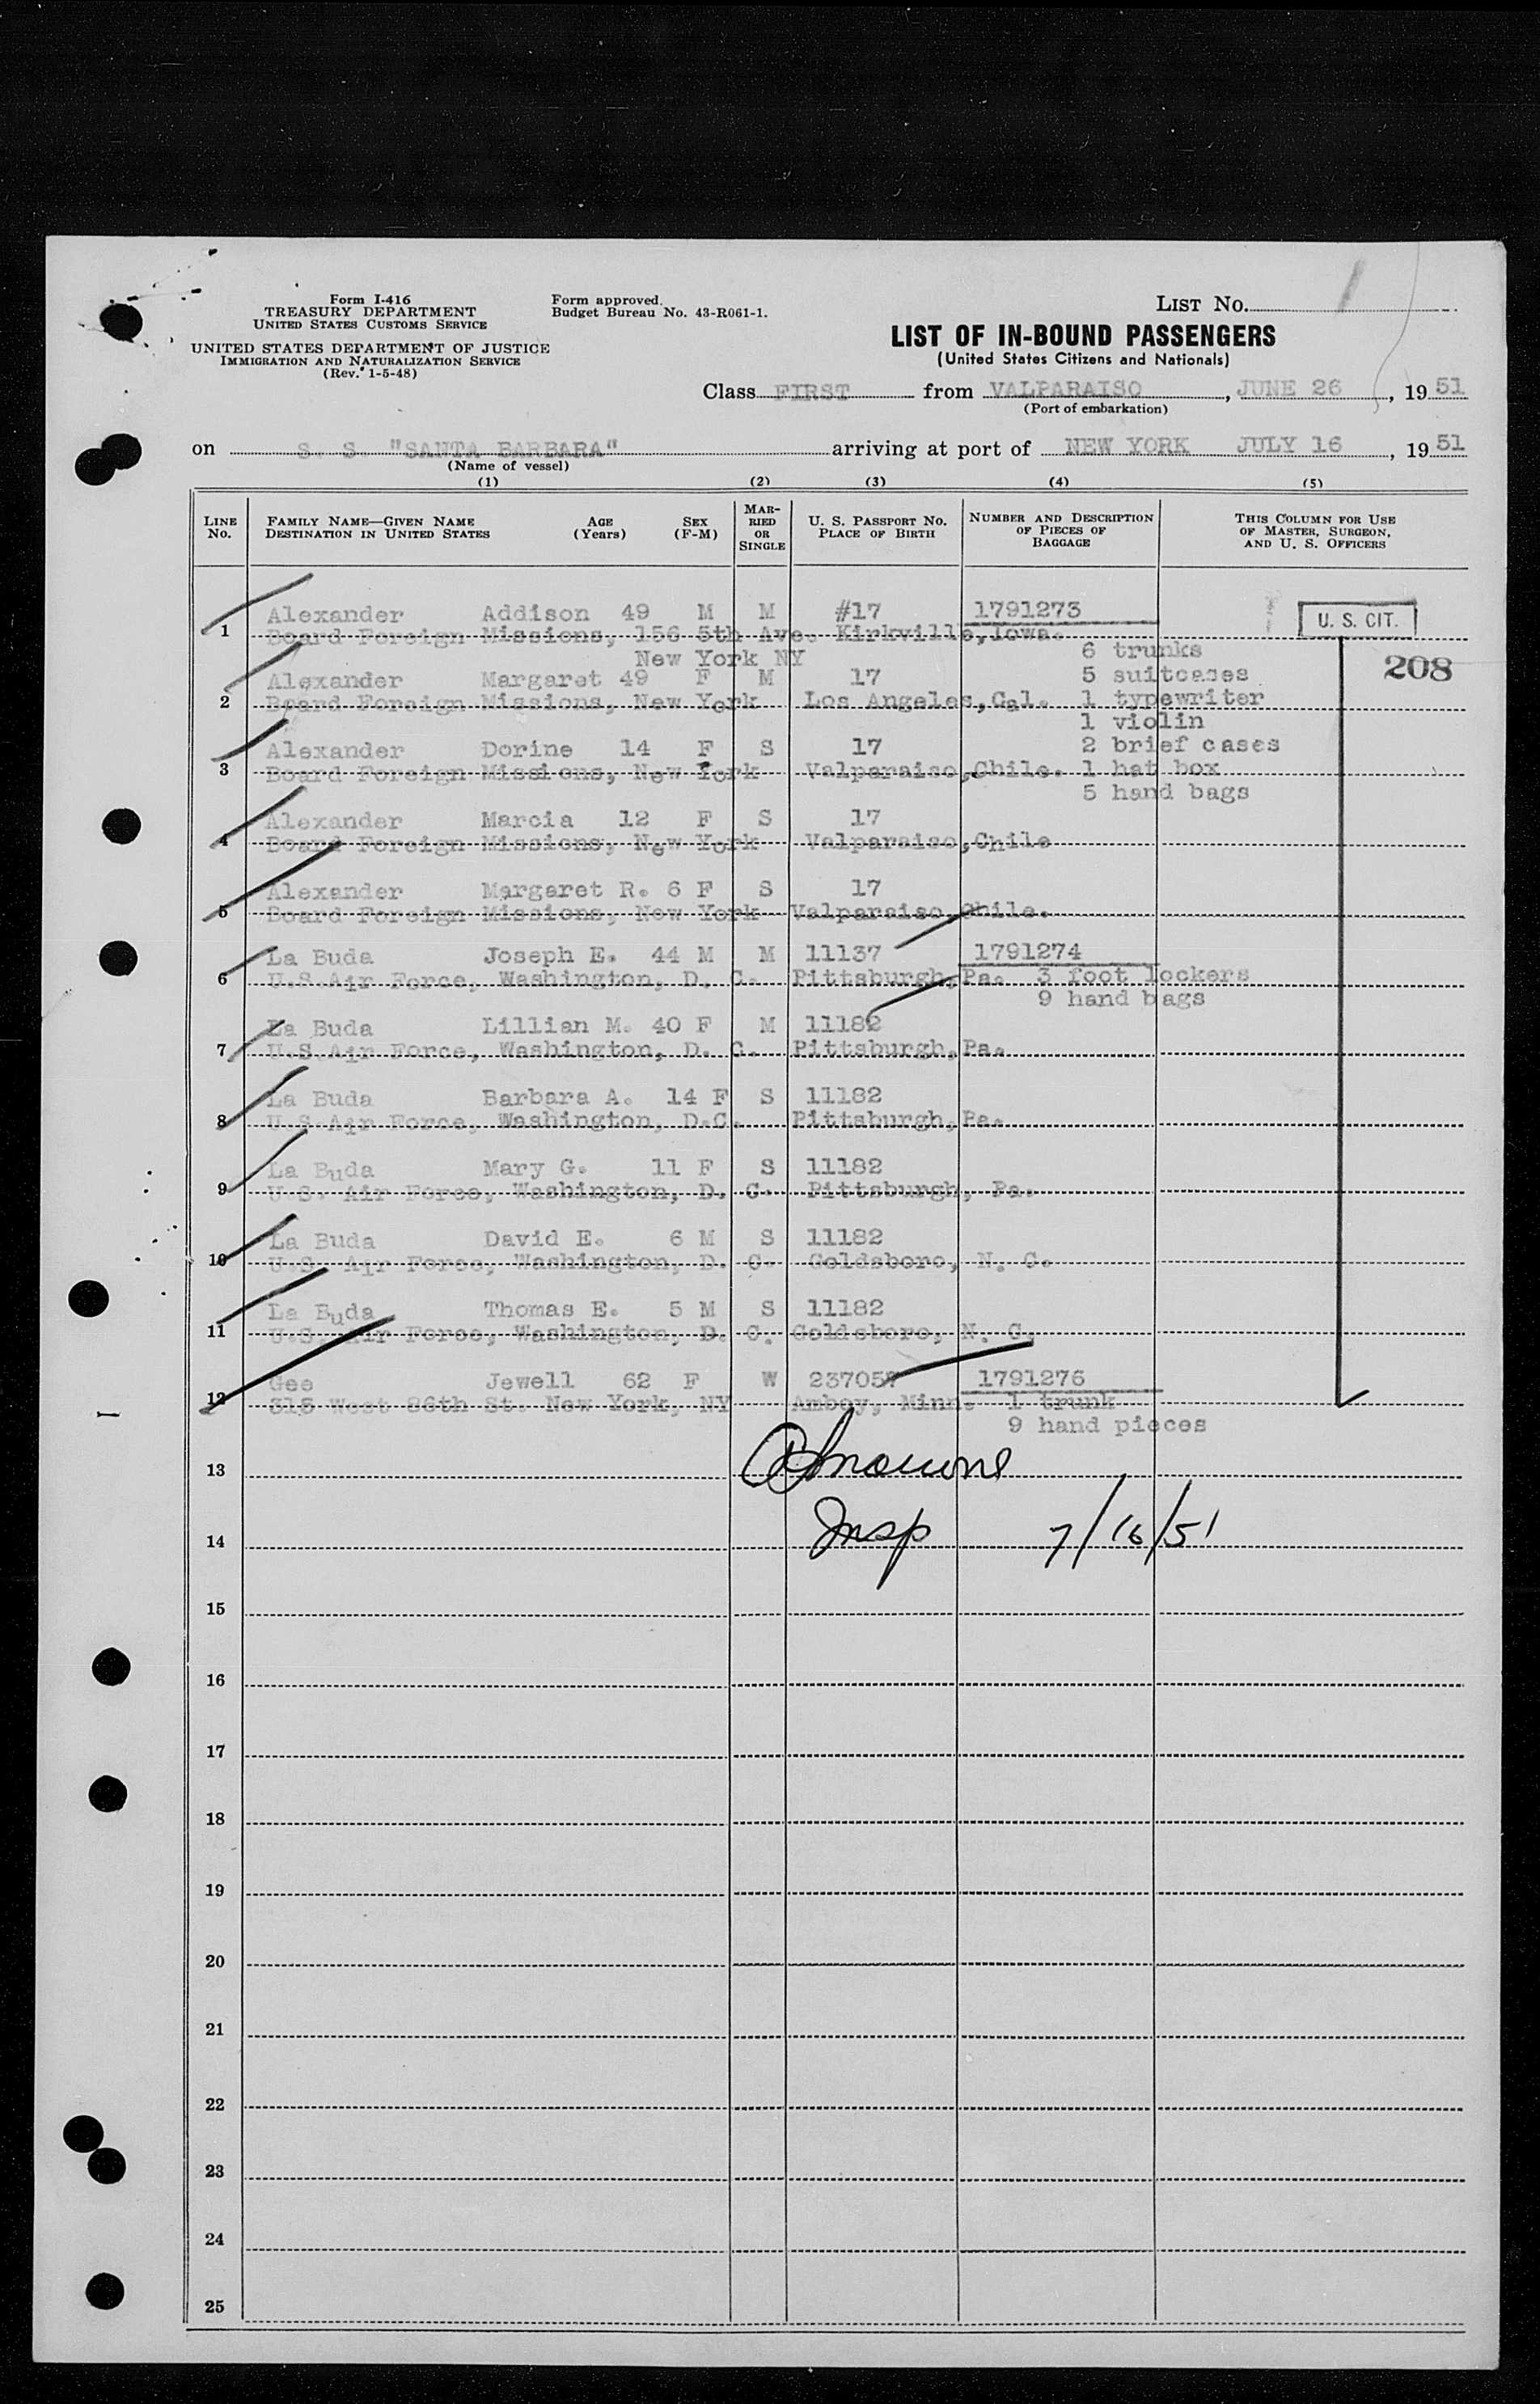 Form I-416
TREASURY DEPARTMENT
UNITED STATES CUSTOMS SERVICE
UNITED STATES DEPARTMENT OF JUSTICE
IMMIGRATION AND NATURALIZATION SERVICE
(Rev. 1-5-48)
Form approved.
Budget Bureau No. 43-R061-1.
LIST NO. 1
LIST OF IN-BOUND PASSENGERS
(United States Citizens and Nationals)
Class FIRST from VALPARAISO, JUNE 26, 1951
(Port of embarkation)
on S. S. "SANTA BARBARA" arriving at port of NEW YORK JULY 16, 1951
(Name of vessel)
(1) (2) (3) (4) (5)
LINE NO.
FAMILY NAME—GIVEN NAME
DESTINATION IN UNITED STATES
AGE (Years)
SEX (F-M)
MARRIED OR SINGLE
U. S. PASSPORT NO.
PLACE OF BIRTH
NUMBER AND DESCRIPTION OF PIECES OF BAGGAGE
THIS COLUMN FOR USE OF MASTER, SURGEON, AND U. S. OFFICERS
U. S. CIT.
208
1 Alexander Addison 49 M M #17 1791273
Board Foreign Missions, 156 5th Ave. Kirkville, Iowa.
New York NY 6 trunks
2 Alexander Margaret 49 F M 17 5 suitcases
Board Foreign Missions, New York Los Angeles, Cal. 1 typewriter
1 violin
3 Alexander Dorine 14 F S 17 2 brief cases
Board Foreign Missions, New York Valparaiso, Chile. 1 hat box
5 hand bags
4 Alexander Marcia 12 F S 17
Board Foreign Missions, New York Valparaiso, Chile
5 Alexander Margaret R. 6 F S 17
Board Foreign Missions, New York Valparaiso, Chile.
6 La Buda Joseph E. 44 M M 11137 1791274
U.S.Air Force, Washington, D. C. Pittsburgh, Pa. 3 foot lockers
9 hand bags
7 La Buda Lillian M. 40 F M 11182
U.S.Air Force, Washington, D. C. Pittsburgh, Pa.
8 La Buda Barbara A. 14 F S 11182
U.S.Air Force, Washington, D.C. Pittsburgh, Pa.
9 La Buda Mary G. 11 F S 11182
U.S. Air Force, Washington, D. C. Pittsburgh, Pa.
10 La Buda David E. 6 M S 11182
U.S. Air Force, Washington, D. C. Goldsboro, N. C.
11 La Buda Thomas E. 5 M S 11182
U.S. Air Force, Washington, D. C. Goldsboro, N. C.
12 Gee Jewell 62 F W 237057 1791276
315 West 86th St. New York, NY Amboy, Minn. 1 trunk
9 hand pieces
13
14 Insp 7/16/51
15
16
17
18
19
20
21
22
23
24
25